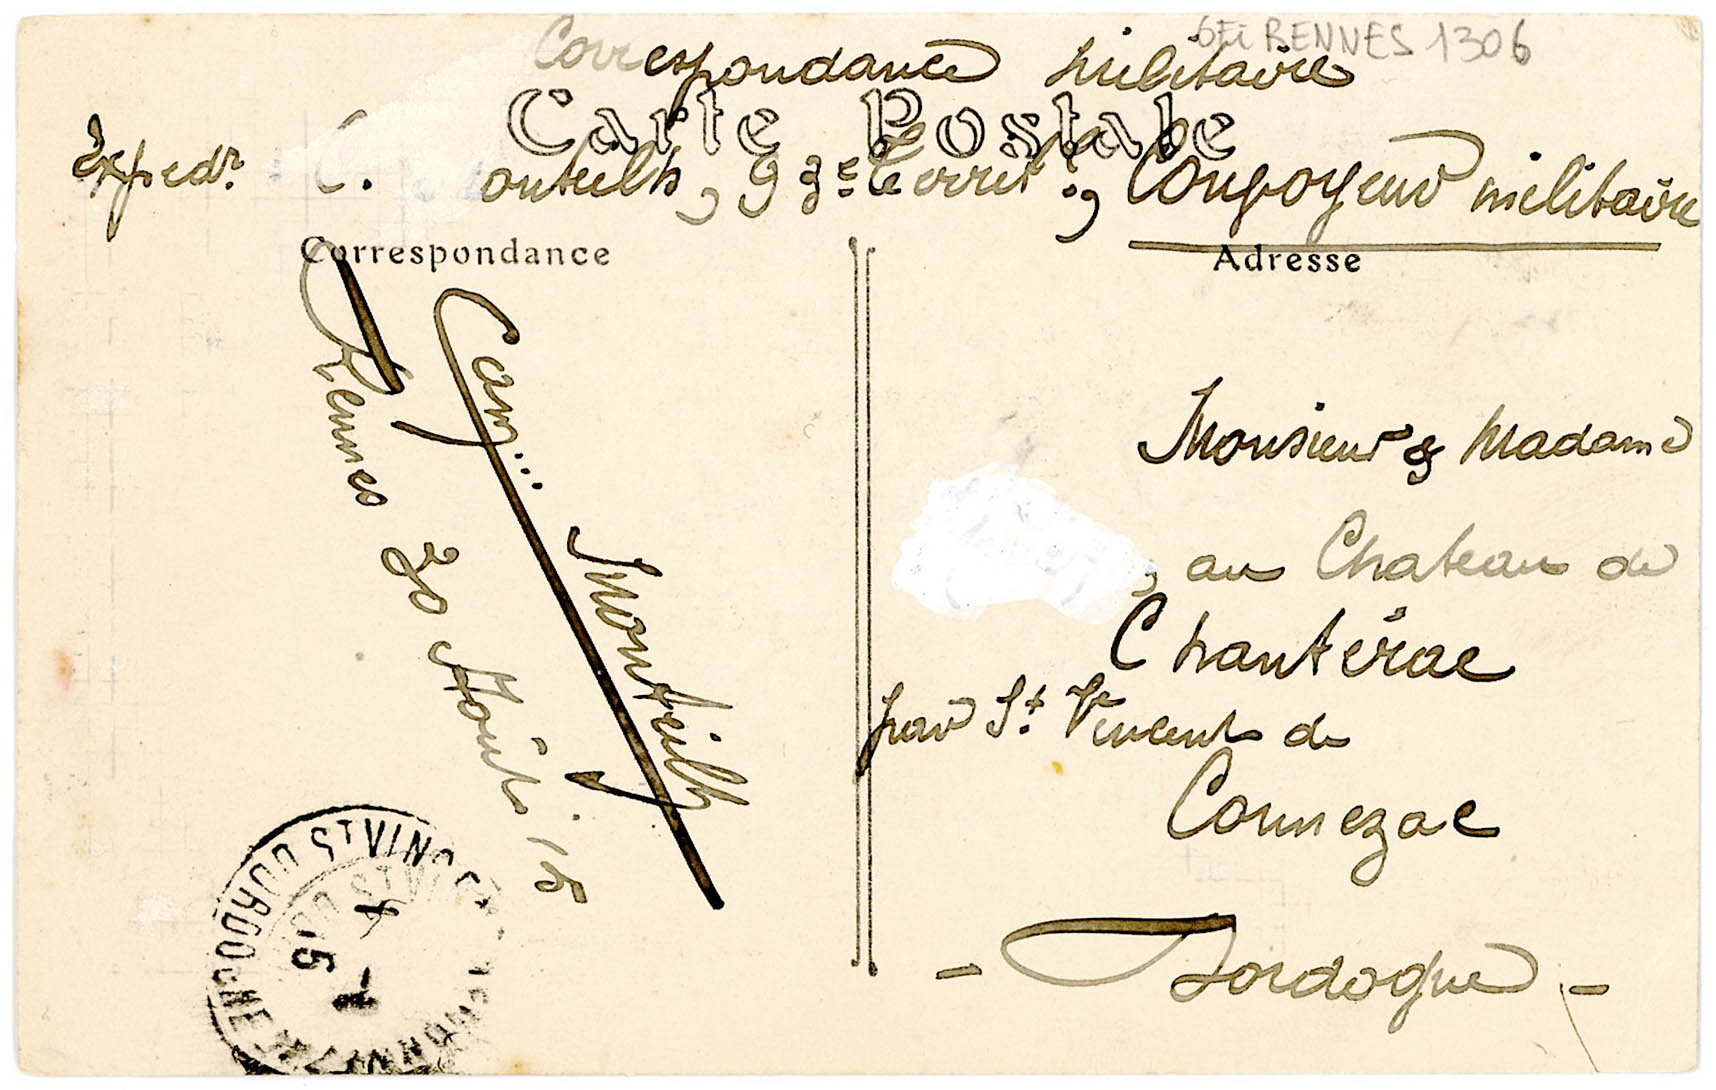 6Fi RENNES 1306
Correspondance Militaire
Carte Postale
Expedr. C. onteilh, 93e Territ., Convoyeur militaire
Correspondance
Adresse
Rennes 30 Août 15
Cam... Monteilh
Monsieur & Madame
, au Chateau de
Chantérac
par St. Vincent de
Connezac
- Dordogne -
ST VINC
DORDOGNE
15